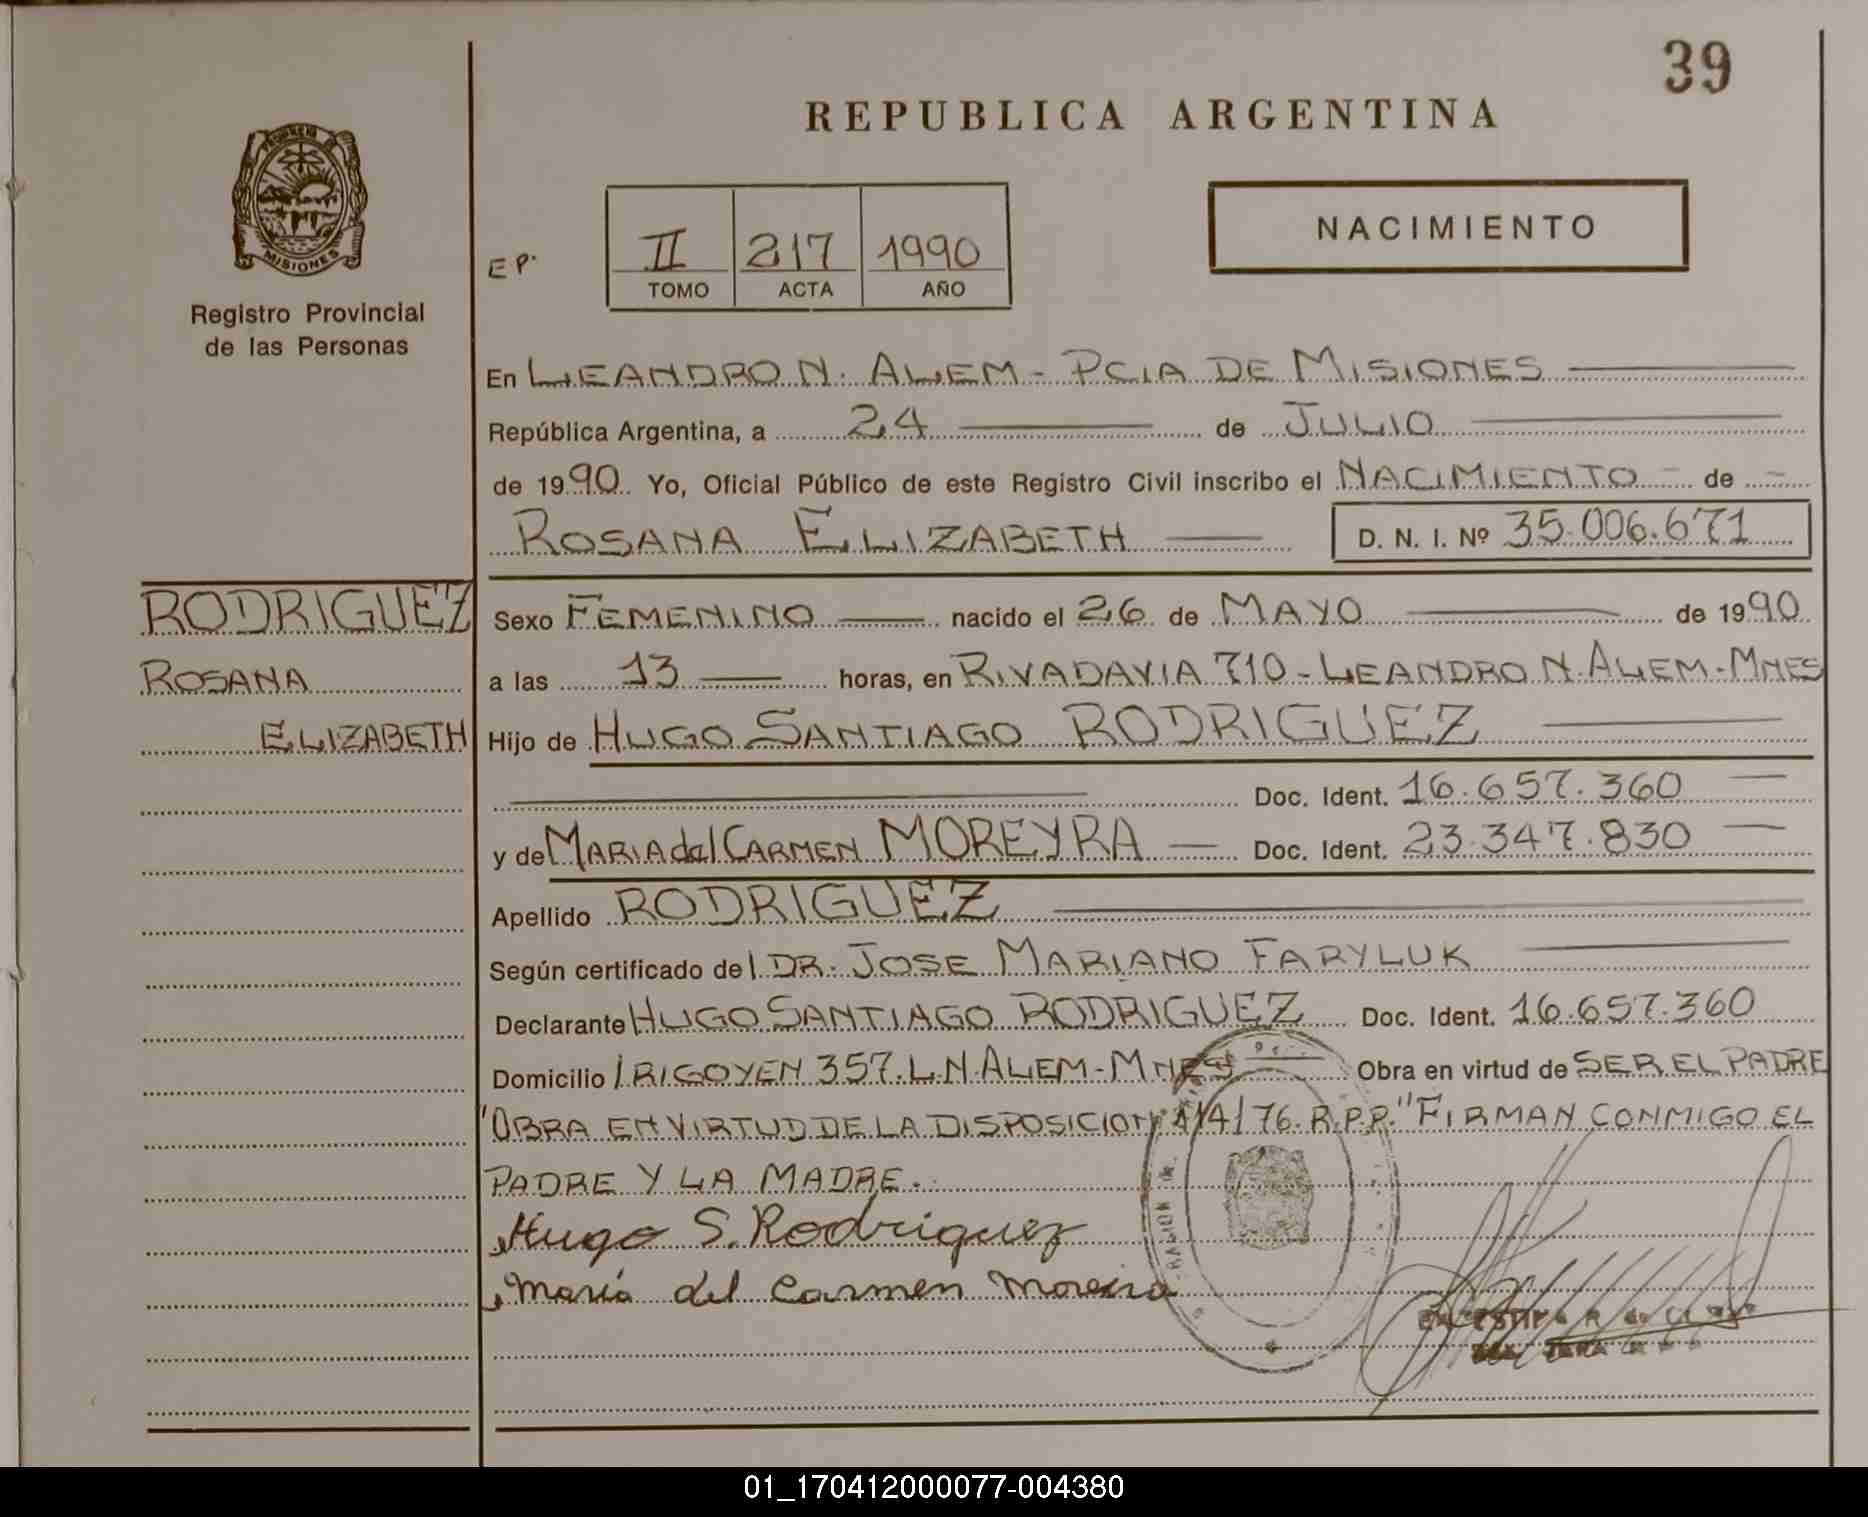 39
REPUBLICA ARGENTINA
PROVINCIA DE
MISIONES
Registro Provincial
de las Personas
NACIMIENTO
E P.
II 217 1990
TOMO ACTA AÑO
En LEANDRO N. ALEM - PCIA DE MISIONES
República Argentina, a 24 de JULIO
de 1990. Yo, Oficial Público de este Registro Civil inscribo el NACIMIENTO - de -
ROSANA ELIZABETH D. N. I. Nº 35.006.671
RODRIGUEZ
ROSANA
ELIZABETH
Sexo FEMENINO nacido el 26 de MAYO de 1990
a las 13 horas, en RIVADAVIA 710 - LEANDRO N. ALEM - MNES
Hijo de HUGO SANTIAGO RODRIGUEZ
Doc. Ident. 16.657.360
y de MARIA del CARMEN MOREYRA Doc. Ident. 23.347.830
Apellido RODRIGUEZ
Según certificado del DR. JOSE MARIANO FARYLUK
Declarante HUGO SANTIAGO RODRIGUEZ Doc. Ident. 16.657.360
Domicilio IRIGOYEN 357. L.N. ALEM - MNES Obra en virtud de SER EL PADRE
"OBRA EN VIRTUD DE LA DISPOSICION 114/76. R.P.P." FIRMAN CONMIGO EL
PADRE Y LA MADRE.
Hugo S. Rodriguez
María del Carmen Moreira
01_170412000077-004380